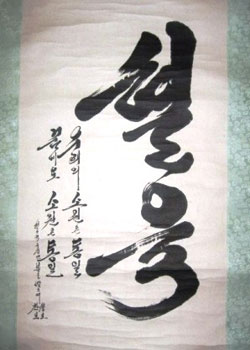 혈육
우리의 소원은 통일
꿈에도 소원은 통일